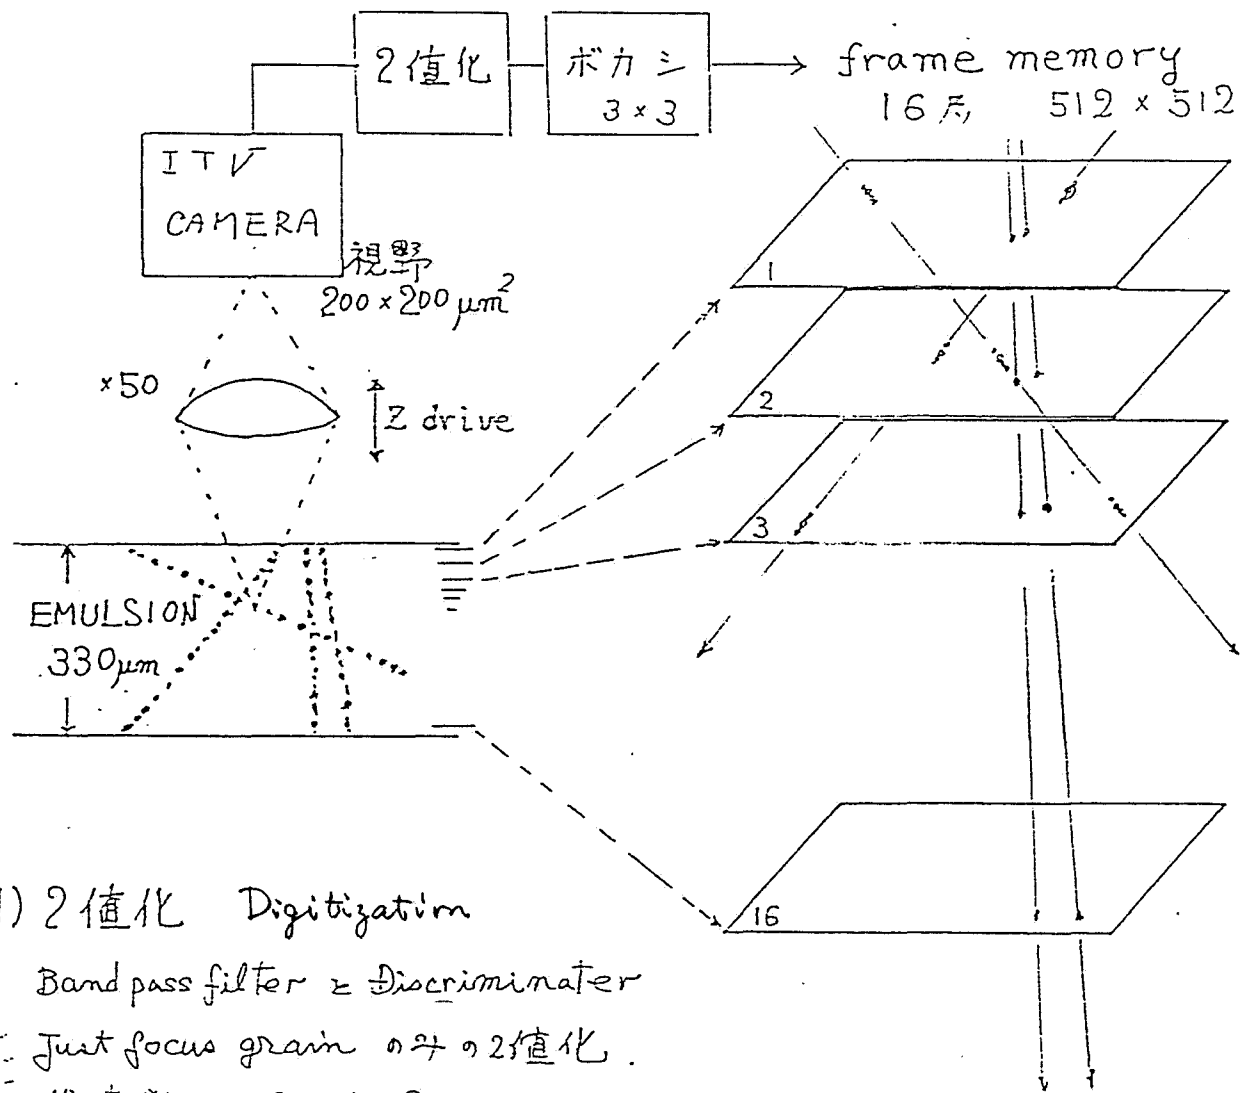 2値化
ボカシ
3×3
frame memory
16層 512×512
ITV
CAMERA
視野
200×200μm²
×50
Z drive
EMULSION
330μm
1
2
3
16
1) 2値化 Digitization
Band pass filter と Discriminater
Just focus grain のみの2値化.